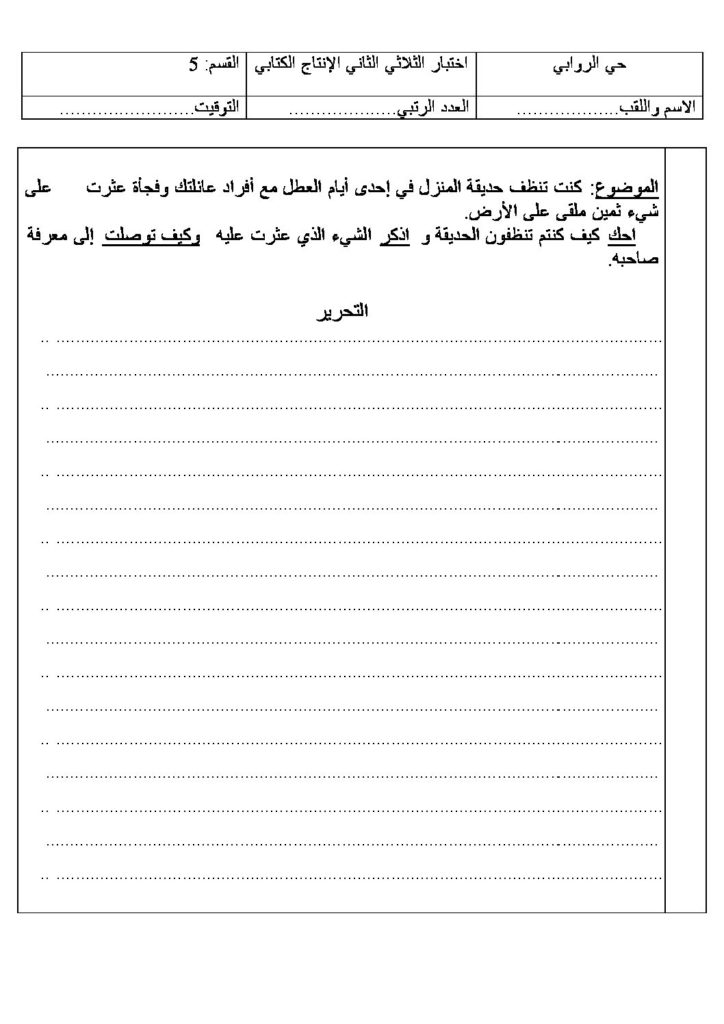 حي الروابي
اختبار الثلاثي الثاني الإنتاج الكتابي
القسم: 5
الاسم واللقب...................
العدد الرتبي....................
التوقيت.........................
الموضوع: كنت تنظف حديقة المنزل في إحدى أيام العطل مع أفراد عائلتك وفجأة عثرت على
شيء ثمين ملقى على الأرض.
احك كيف كنتم تنظفون الحديقة و اذكر الشيء الذي عثرت عليه وكيف توصلت إلى معرفة
صاحبه.
التحرير